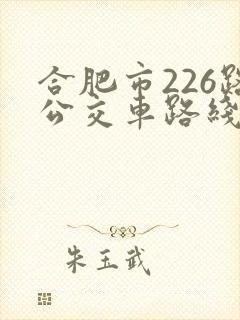 合肥市226路
公交车路线
朱玉武